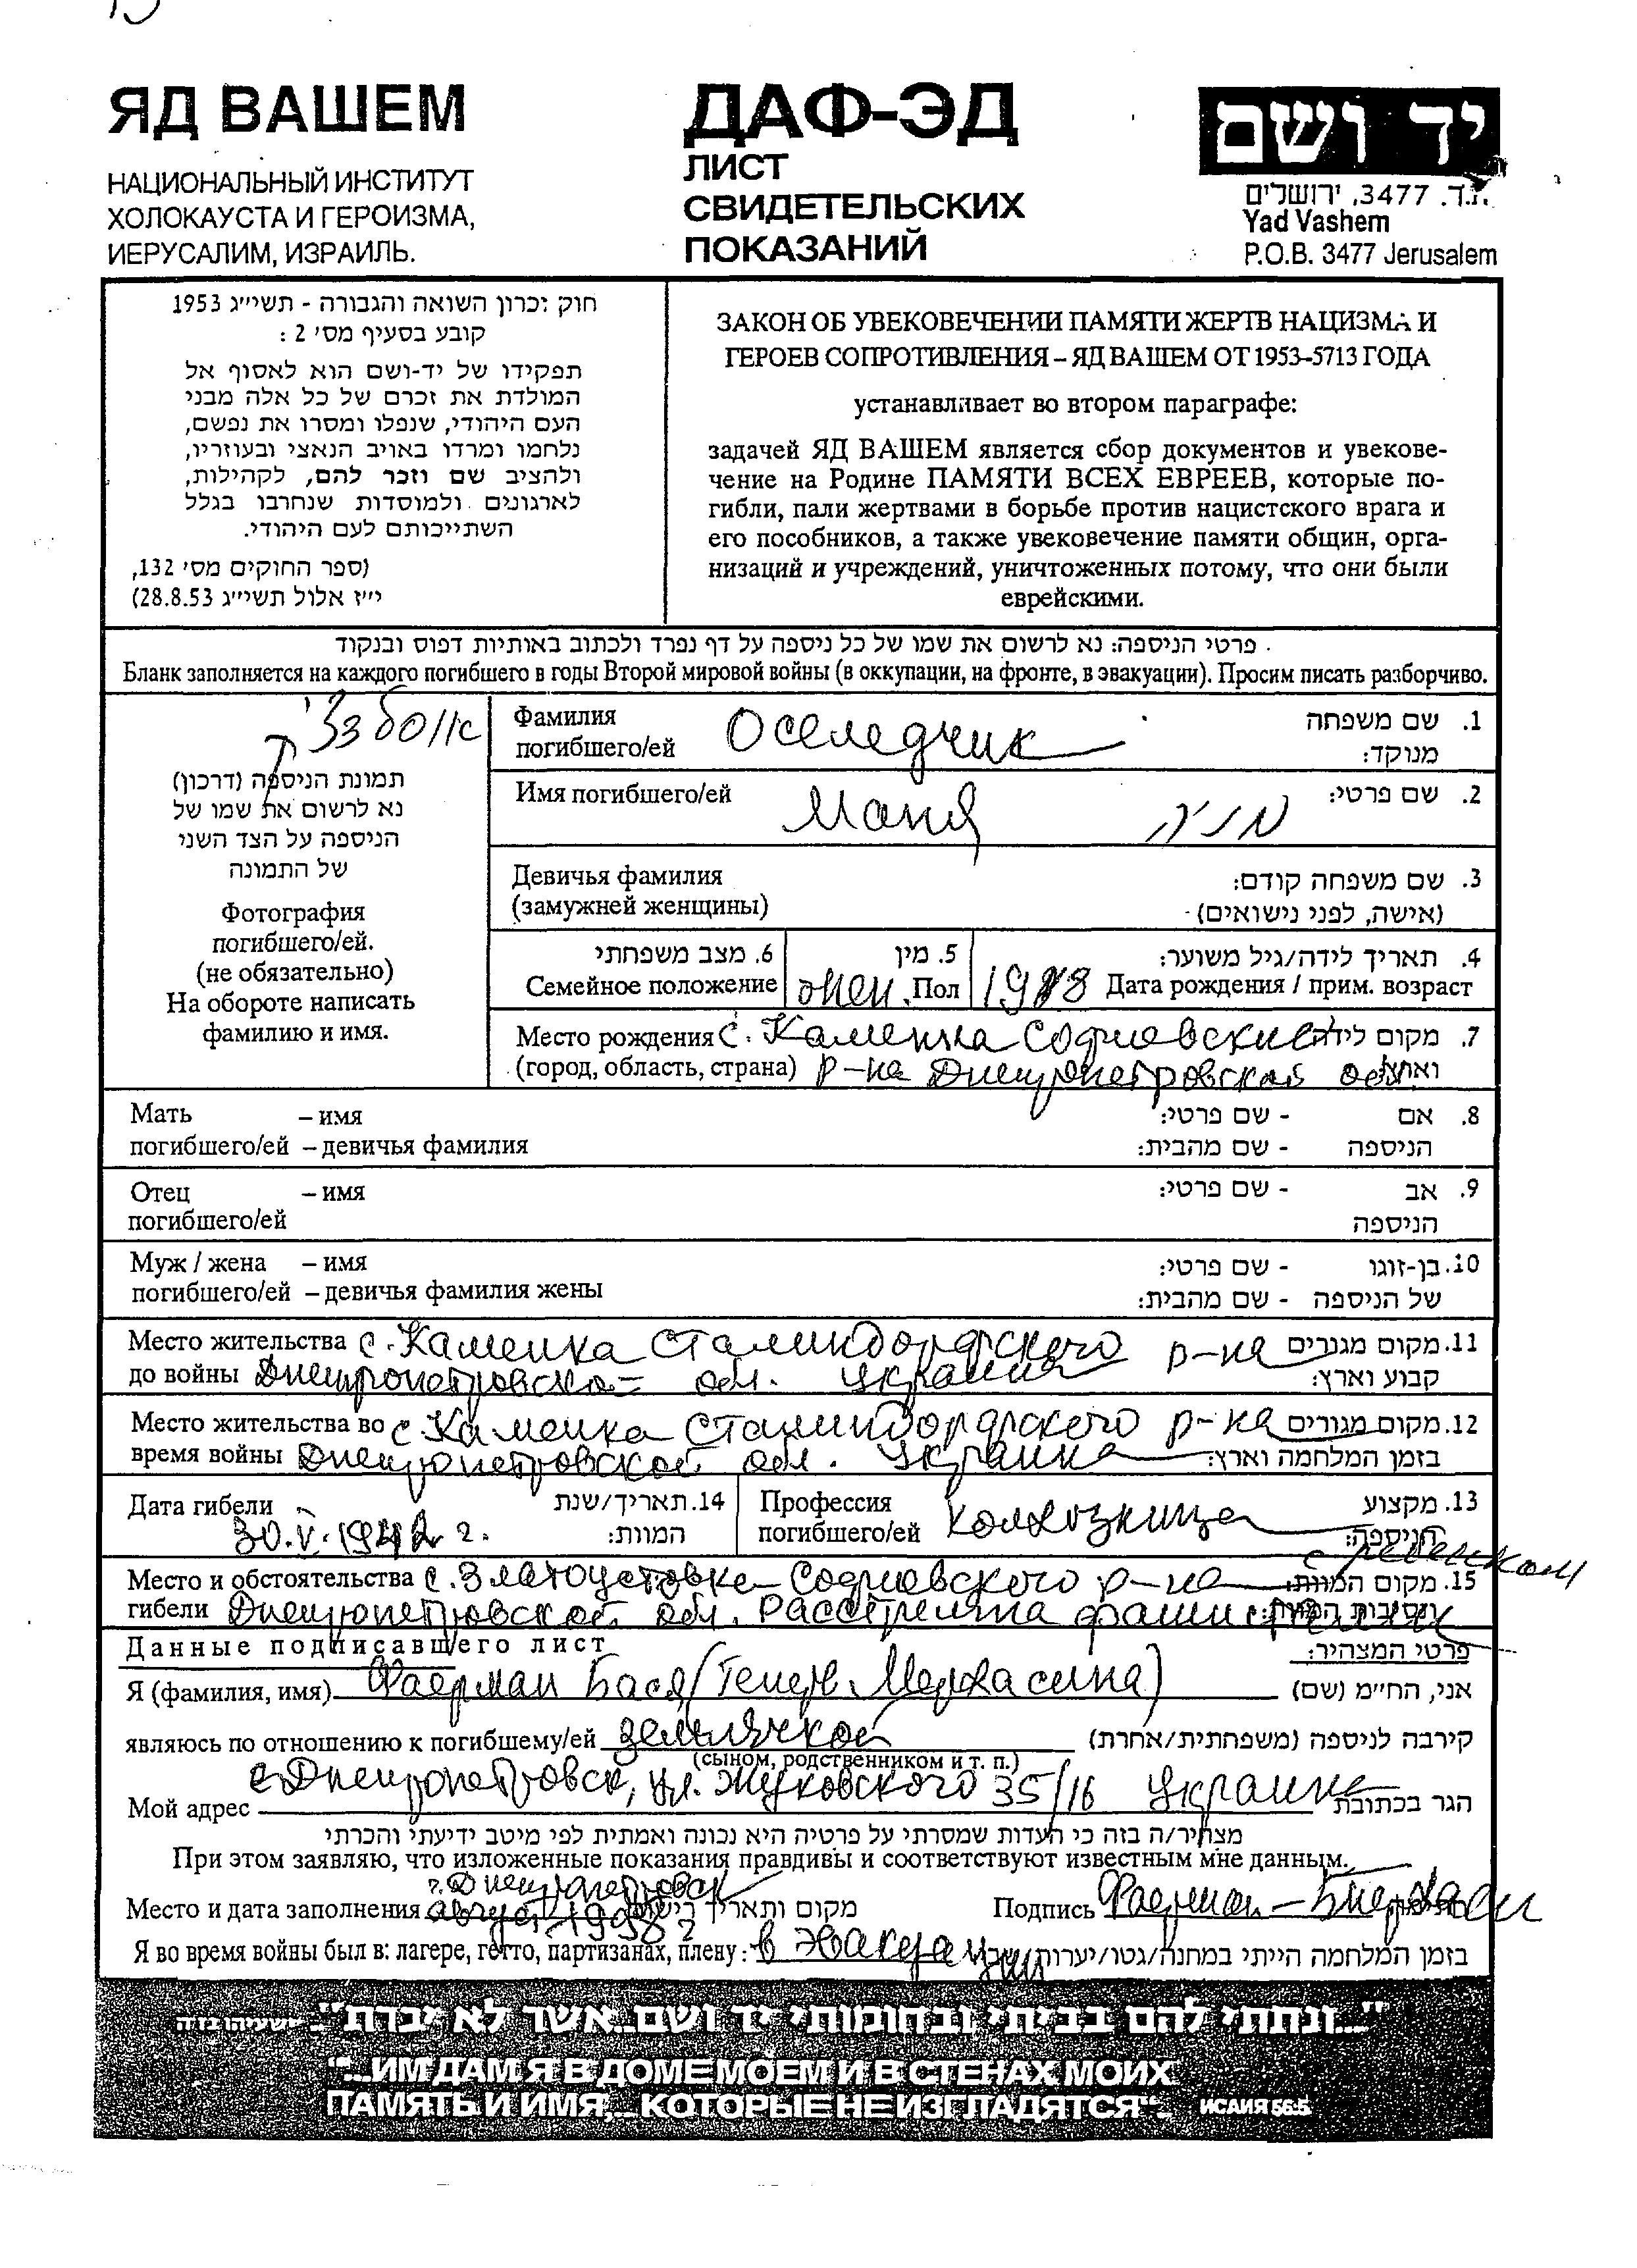 ЯД ВАШЕМ
НАЦИОНАЛЬНЫЙ ИНСТИТУТ
ХОЛОКАУСТА И ГЕРОИЗМА,
ИЕРУСАЛИМ, ИЗРАИЛЬ.
ДАФ-ЭД
ЛИСТ
СВИДЕТЕЛЬСКИХ
ПОКАЗАНИЙ
יד ושם
ת.ד. 3477, ירושלים
Yad Vashem
P.O.B. 3477 Jerusalem
חוק זכרון השואה והגבורה - תשי״ג 1953
קובע בסעיף מס׳ 2 :
תפקידו של יד-ושם הוא לאסוף אל
המולדת את זכרם של כל אלה מבני
העם היהודי, שנפלו ומסרו את נפשם,
נלחמו ומרדו באויב הנאצי ובעוזריו,
ולהציב שם וזכר להם, לקהילות,
לארגונים ולמוסדות שנחרבו בגלל
השתייכותם לעם היהודי.
(ספר החוקים מס׳ 132,
י״ז אלול תשי״ג 28.8.53)
ЗАКОН ОБ УВЕКОВЕЧЕНИИ ПАМЯТИ ЖЕРТВ НАЦИЗМА И
ГЕРОЕВ СОПРОТИВЛЕНИЯ – ЯД ВАШЕМ ОТ 1953-5713 ГОДА
устанавливает во втором параграфе:
задачей ЯД ВАШЕМ является сбор документов и увекове-
чение на Родине ПАМЯТИ ВСЕХ ЕВРЕЕВ, которые по-
гибли, пали жертвами в борьбе против нацистского врага и
его пособников, а также увековечение памяти общин, орга-
низаций и учреждений, уничтоженных потому, что они были
еврейскими.
פרטי הניספה: נא לרשום את שמו של כל ניספה על דף נפרד ולכתוב באותיות דפוס ובנקוד
Бланк заполняется на каждого погибшего в годы Второй мировой войны (в оккупации, на фронте, в эвакуации). Просим писать разборчиво.
תמונת הניספה (דרכון)
נא לרשום את שמו של
הניספה על הצד השני
של התמונה
Фотография
погибшего/ей.
(не обязательно)
На обороте написать
фамилию и имя.
Фамилия Оселедчик 1. שם משפחה
погибшего/ей מנוקד:
Имя погибшего/ей Маня מניה 2. שם פרטי:
Девичья фамилия 3. שם משפחה קודם:
(замужней женщины) (אישה, לפני נישואים)
6. מצב משפחתי 5. מין 4. תאריך לידה/גיל משוער:
Семейное положение жен. Пол Дата рождения / прим. возраст
Место рождения с. Каменка Софиевский 7. מקום לידה
(город, область, страна) р-на Днепропетровская обл. וארץ:
Мать – имя 8. אם - שם פרטי:
погибшего/ей – девичья фамилия הניספה - שם מהבית:
Отец – имя 9. אב - שם פרטי:
погибшего/ей הניספה
Муж / жена – имя 10. בן-זוגו - שם פרטי:
погибшего/ей – девичья фамилия жены של הניספה - שם מהבית:
Место жительства с. Каменка Сталиндорфского р-на 11. מקום מגורים
до войны Днепропетровская обл. Украина קבוע וארץ:
Место жительства во с Каменка Сталиндорфского р-на 12. מקום מגורים
время войны Днепропетровской обл. Украина בזמן המלחמה וארץ:
Дата гибели 14. תאריך/שנת Профессия 13. מקצוע
30.V.1942 г. המוות: погибшего/ей колхозница הניספה:
с ребенком
Место и обстоятельства с. Златоустовка Софиевского р-на 15. מקום המוות
гибели Днепропетровской обл. Расстреляна фашистами ונסיבות המוות:
Данные подписавшего лист פרטי המצהיר:
Я (фамилия, имя) Фаерман Бася אני, הח״מ (שם)
являюсь по отношению к погибшему/ей землячкой קירבה לניספה (משפחתית/אחרת)
(сыном, родственником и т. п.)
Днепропетровск, ул. Жуковского 35/16 Украина
Мой адрес הגר בכתובת
מצהיר/ה בזה כי העדות שמסרתי על פרטיה היא נכונה ואמתית לפי מיטב ידיעתי והכרתי
При этом заявляю, что изложенные показания правдивы и соответствуют известным мне данным.
г. Днепропетровск
Место и дата заполнения август 1998 г מקום ותאריך Подпись Фаерман
Я во время войны был в: лагере, гетто, партизанах, плену: в эвакуации בזמן המלחמה הייתי במחנה/גטו/יערות/
"...ונתתי להם בביתי ובחומותי יד ושם...אשר לא יכרת" ישעיהו נו ה
"...ИМ ДАМ Я В ДОМЕ МОЕМ И В СТЕНАХ МОИХ
ПАМЯТЬ И ИМЯ,...КОТОРЫЕ НЕ ИЗГЛАДЯТСЯ". ИСАИЯ 56:5